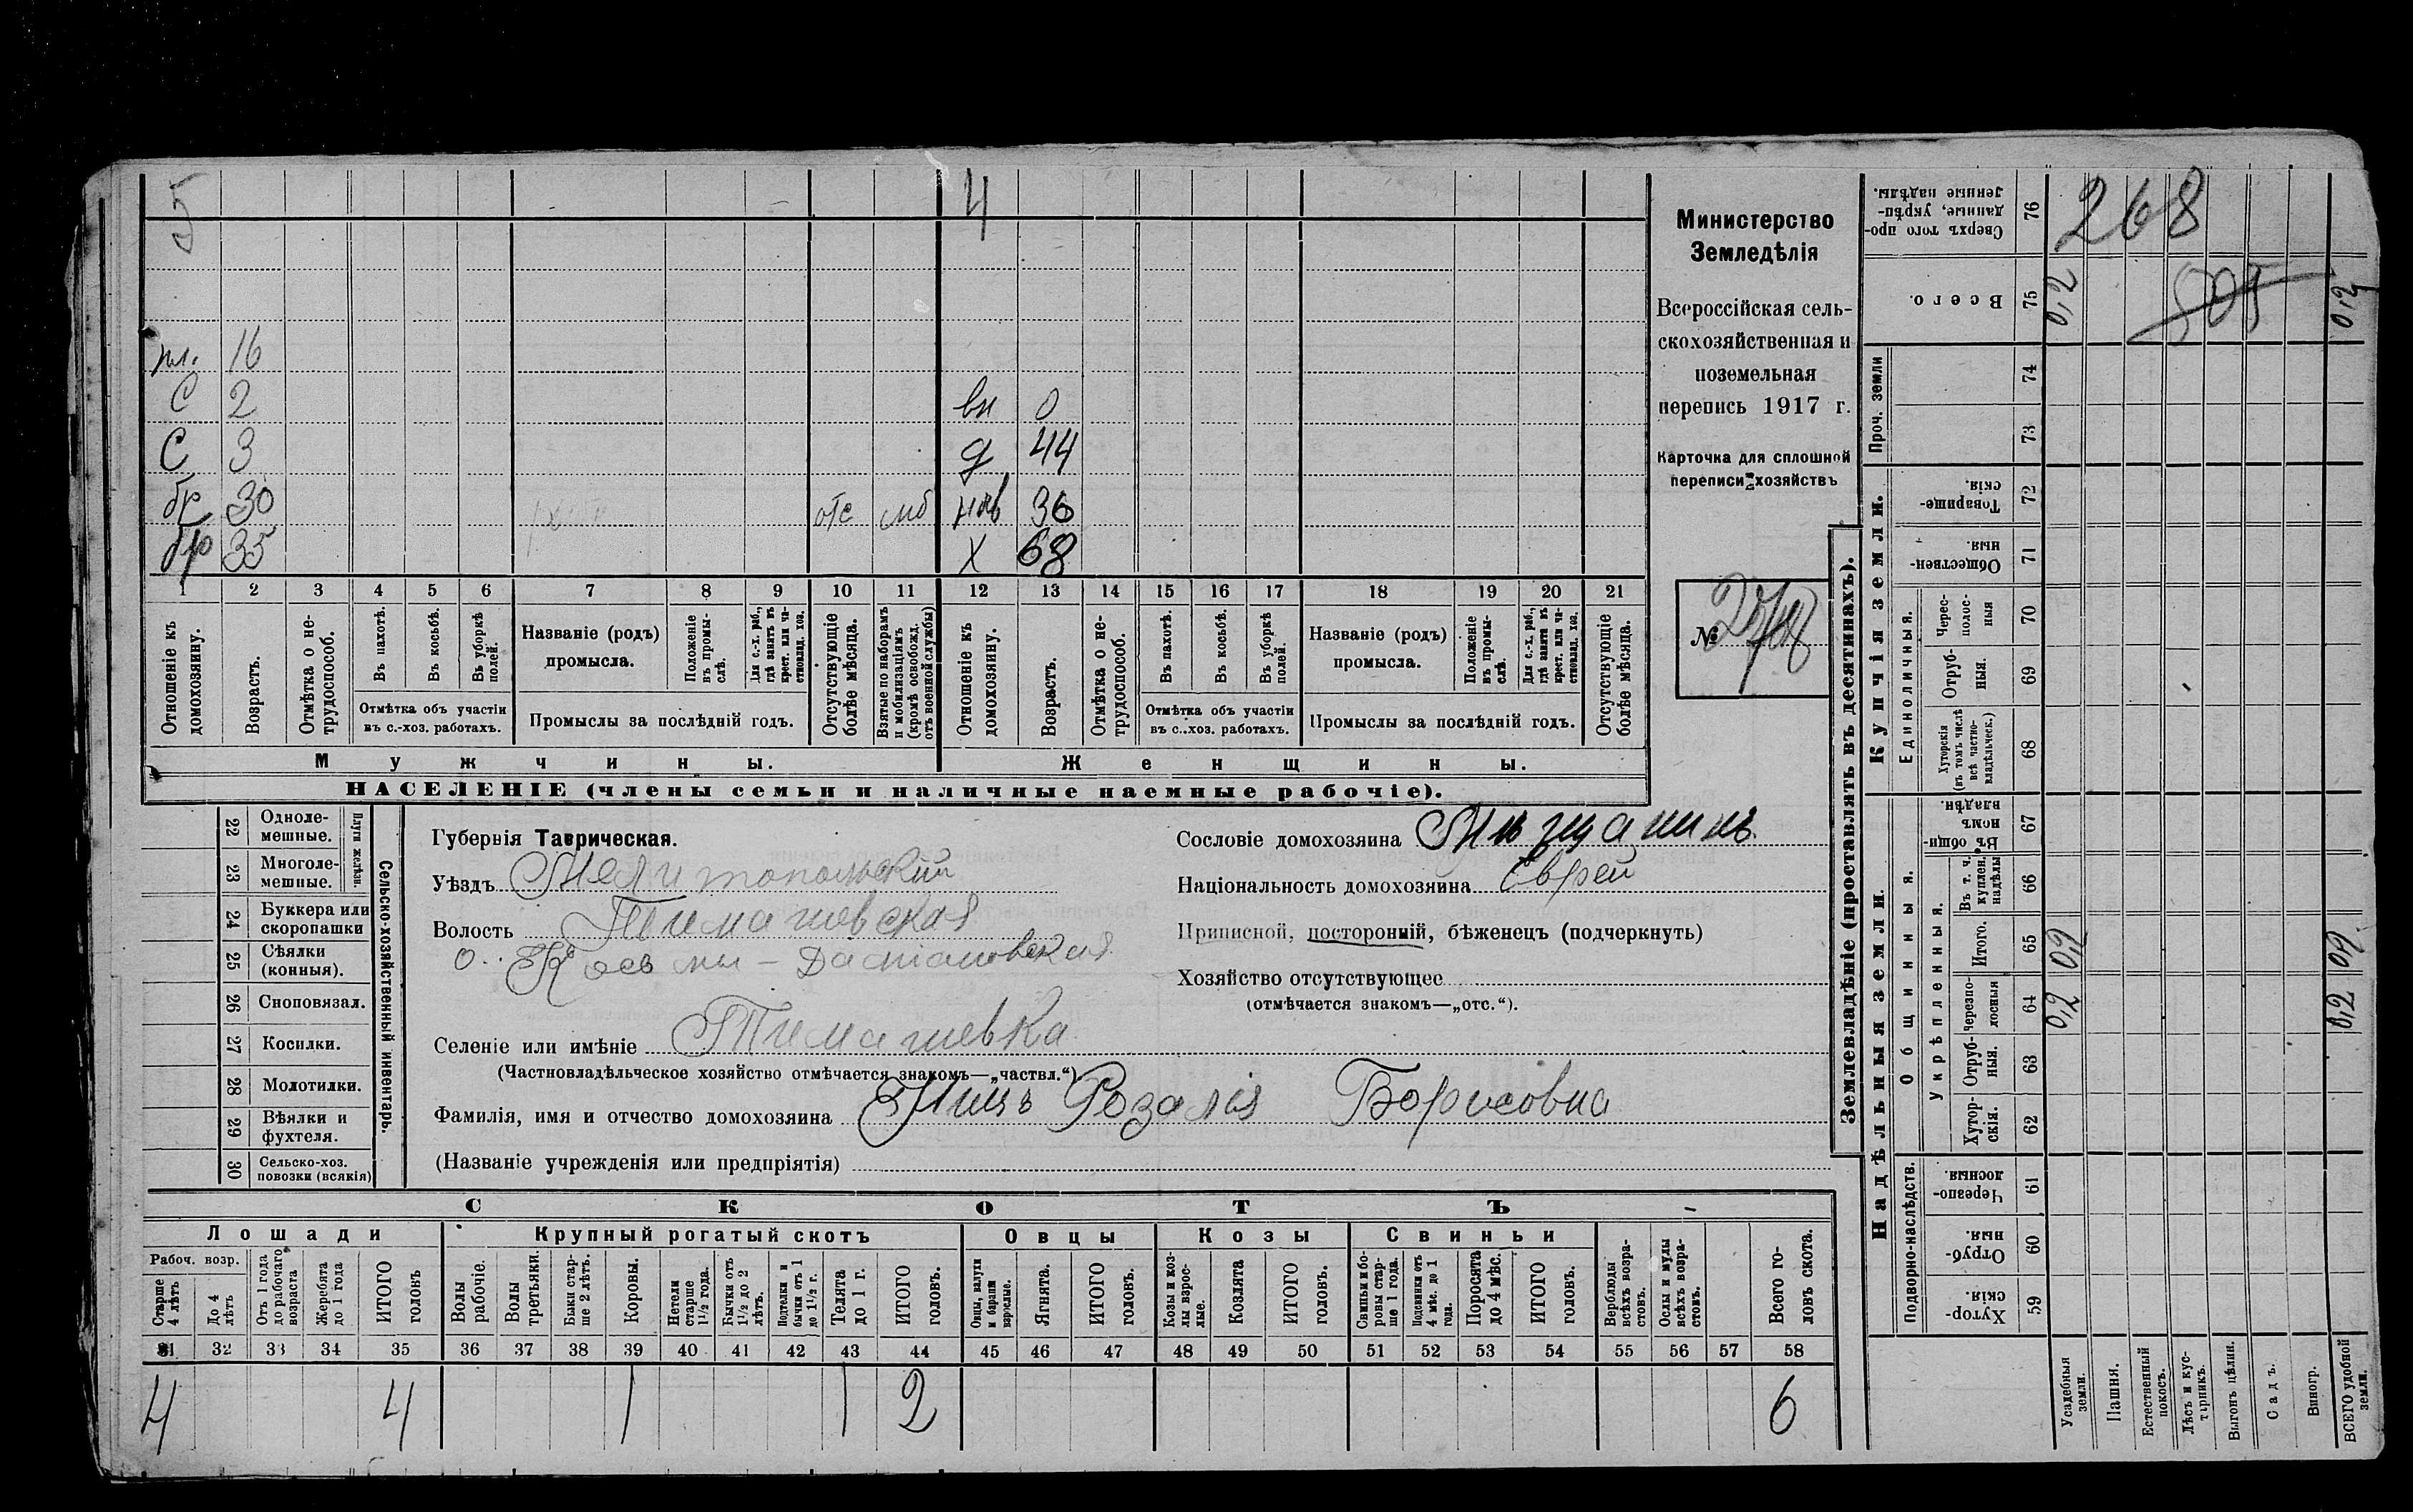 5 4
пл. 16
С 2 вн 0
С 3 д 44
бр 30 отс мб нев 36
бр 35 х 68
1 2 3 4 5 6 7 8 9 10 11 12 13 14 15 16 17 18 19 20 21
Отношеніе къ домохозяину.
Возрастъ.
Отмѣтка о не-
трудоспособ.
Въ пахотѣ.
Въ косьбѣ.
Въ уборкѣ
полей.
Отмѣтка объ участіи
въ с.-хоз. работахъ.
Названіе (родъ)
промысла.
Положеніе
въ промы-
слѣ.
Для с.-х. раб.,
гдѣ занятъ въ
крест. или ча-
стновлад. хоз.
Промыслы за послѣдній годъ.
Отсутствующіе
болѣе мѣсяца.
Взятые по наборамъ
и мобилизаціямъ
(кромѣ освобожд.
отъ военной службы)
Отношеніе къ
домохозяину.
Возрастъ.
Отмѣтка о не-
трудоспособ.
Въ пахотѣ.
Въ косьбѣ.
Въ уборкѣ
полей.
Отмѣтка объ участіи
въ с.-хоз. работахъ.
Названіе (родъ)
промысла.
Положеніе
въ промы-
слѣ.
Для с.-х. раб.,
гдѣ занята въ
крест. или ча-
стновлад. хоз.
Промыслы за послѣдній годъ.
Отсутствующіе
болѣе мѣсяца.
Мужчины. Женщины.
НАСЕЛЕНІЕ (члены семьи и наличные наемные рабочіе).
Министерство
Земледѣлія
Всероссійская сель-
скохозяйственная и
поземельная
перепись 1917 г.
Карточка для сплошной
переписи хозяйствъ
№
22 Одноле-
мешные.
23 Многоле-
мешные.
Плуги желѣзн.
24 Буккера или
скоропашки
25 Сѣялки
(конныя).
26 Сноповязал.
27 Косилки.
28 Молотилки.
29 Вѣялки и
фухтеля.
30 Сельско-хоз.
повозки (всякія)
Сельско-хозяйственный инвентарь.
Губернія Таврическая.
Уѣздъ Мелитопольскій
Волость Тимашевская
Селеніе или имѣніе Тимашевка
(Частновладѣльческое хозяйство отмѣчается знакомъ—„частвл.“).
Фамилія, имя и отчество домохозяина Розалія Борисовна
(Названіе учрежденія или предпріятія)
Сословіе домохозяина Мѣщанинъ
Національность домохозяина Еврей
Приписной, посторонній, бѣженецъ (подчеркнуть)
Хозяйство отсутствующее
(отмѣчается знакомъ—„отс.“).
СКОТЪ
Лошади Крупный рогатый скотъ Овцы Козы Свиньи
Рабоч. возр.
Старше
4 лѣтъ
До 4
лѣтъ
Отъ 1 года
до рабочаго
возраста
Жеребята
до 1 года
ИТОГО
головъ
Волы
рабочіе.
Волы
третьяки.
Быки стар-
ше 2 лѣтъ.
Коровы.
Нетели
старше
1½ года.
Бычки отъ
1½ до 2
лѣтъ.
Подтелки и
бычки отъ 1
до 1½ г.
Телята
до 1 г.
ИТОГО
головъ.
Овцы, валухи
и бараны
взрослые.
Ягнята.
ИТОГО
головъ.
Козы и коз-
лы взрос-
лые.
Козлята
ИТОГО
головъ.
Свиньи и бо-
ровы стар-
ше 1 года.
Подсвинки отъ
4 мѣс. до 1
года.
Поросята
до 4 мѣс.
ИТОГО
головъ.
Верблюды
всѣхъ возра-
стовъ.
Ослы и мулы
всѣхъ возра-
стовъ.
Всего го-
ловъ скота.
31 32 33 34 35 36 37 38 39 40 41 42 43 44 45 46 47 48 49 50 51 52 53 54 55 56 57 58
4 4 1 1 2 6
Землевладѣніе (проставлять въ десятинахъ).
Надѣльныя земли. Купчія земли. Проч. земли
Подворно-наслѣдств.
Общинныя.
Укрѣпленныя.
Единоличныя.
Хутор-
скія. 59
Отруб-
ныя. 60
Черезпо-
лосныя. 61
Хутор-
скія. 62
Отруб-
ныя. 63
Черезпо-
лосныя 64 0,2 0,2
Итого. 65 0,2 0,2
Въ т. ч.
куплен.
надѣлы 66
Въ общин-
номъ
владѣн. 67
Хуторскія
(въ томъ числѣ
всѣ частно-
владѣльческ.) 68
Отруб-
ныя. 69
Черес-
полос-
ныя 70
Обществен-
ныя. 71
Товарище-
скія. 72
73
74
Всего. 75 0,2 505 0,2
Сверхъ того про-
данные, укрѣп-
ленные надѣлы. 76 268
Усадебныя
земли.
Пашня.
Естественный
покосъ.
Лѣсъ и кус-
тарникъ.
Выгонъ цѣлин.
Садъ.
Виногр.
ВСЕГО удобной
земли.